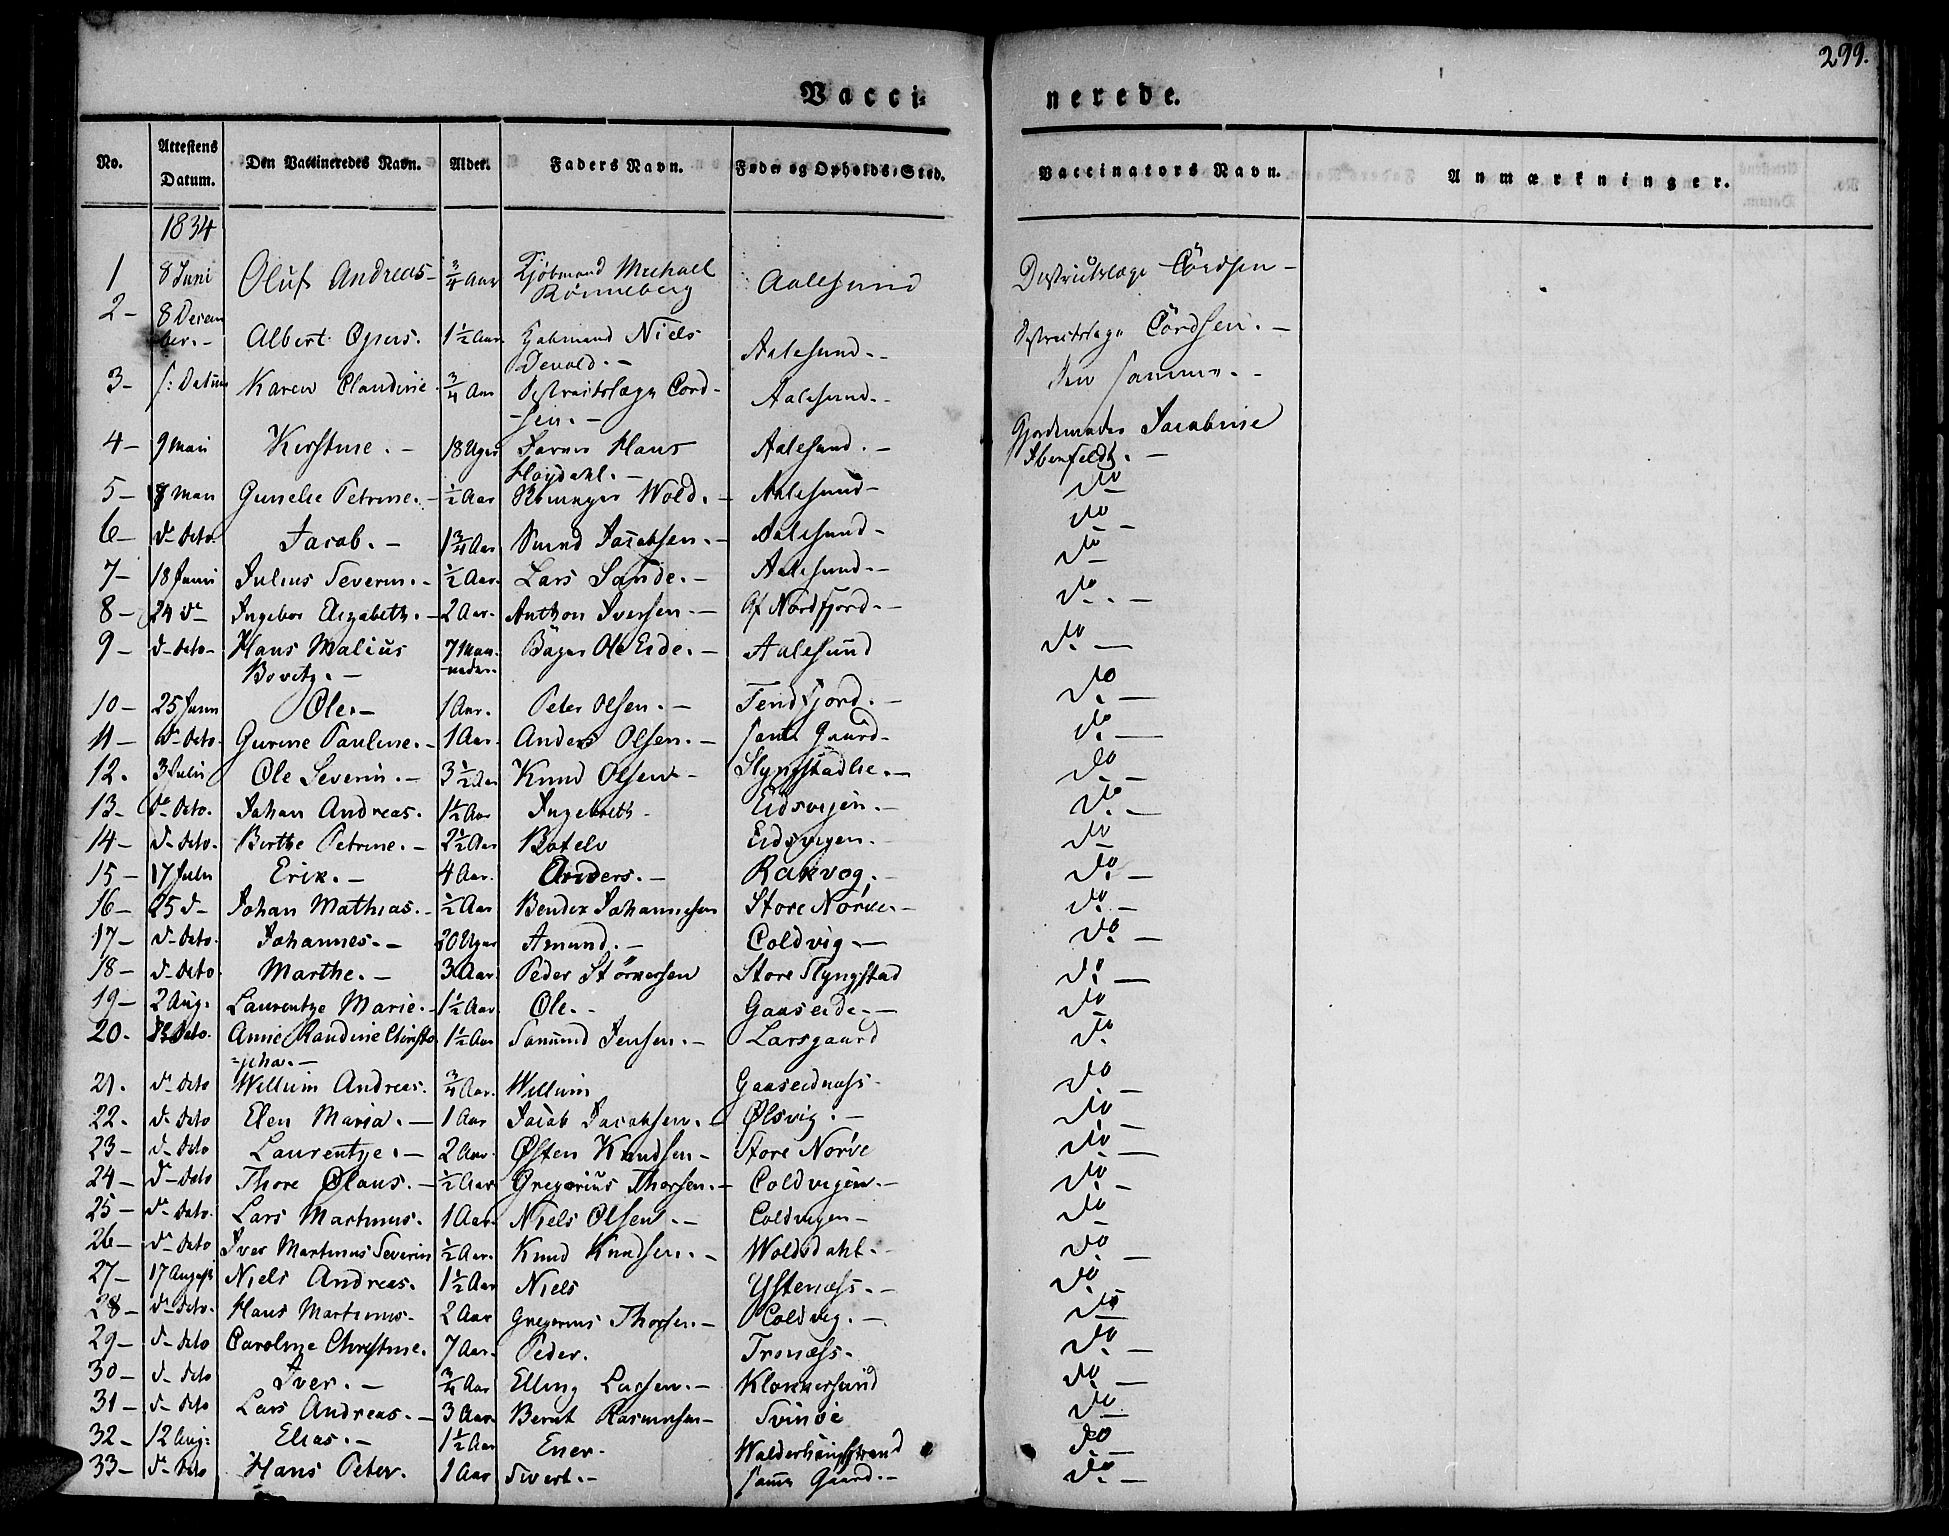 299.
Vacci-
nerede.
No. Attestens Datum. Den Vaccineredes Navn. Alder. Faders Navn. Føde- og Opholds-Sted. Vaccinators Navn. Anmærkninger.
1834
1 8 Juni Oluf Andreas - 3/4 Aar Kjøbmand Michael Rønneberg Aalesund Districtslæge Cördsen -
2 - 8 Decem ber. - Albert 1 1/2 Aar Niels Devold. - Aalesund. - Districtslæge Cördsen. -
3 - Datum Karen Claudine. 3/4 Aar Districtslæge Cord- sen. - Aalesund. - den samme. -
4 - 9 Kirstine. - 18 Uger Hans Høydahl. - Aalesund. - Gjordemoder Jacobine Ibenfeldt. -
5 - Petrine. - 1/2 Aar Wold. - Aalesund - do -
6 - d- deto Jacob. - 1 3/4 Aar Jacobsen. - Aalesund - do -
7 - 18 Juni Julius Severin. - 1/2 Aar. Lars Sande. - Aalesund. - do -
8 - 24 d- Ingebor Elizabeth. - 2 Aar. Anthon Iversen - Af Nordfjord. - do. -
9 - d- deto - Hans Malius 7 Maa- neder. - Ole Eide. - Aalesund do. -
10 - 25 Juni Ole. - 1 Aar. Peter Olsen. - Tendfjord. - do. -
11 - d- deto. Gurine Pauline. - 1 Aar. Anders Olsen. - samme Gaard - do. -
12. 3 Julii Ole Severin. - 3 1/2 Aar Knud Olsen - Slyngstadlie. - do. -
13. - d- deto. Johan Andreas. 1 1/2 Aar Ingebreth - Eidsvigen. - do. -
14 - d- deto. Berthe Petrine. - 2 1/2 Aar Botelv Eidsvigen. do -
15 - 17 Julii Erik. - 4 Aar. Anders. - Rakvog. - do. -
16 - 25 d- Johan Mathias. - 1/2 Aar Bendix Johannesen Store Nørve. - do. -
17 - d- deto. Johannes. - 20 Uger Amund. - Coldvig - do. -
18 - d- deto. Marthe. - 3 Aar Peder Størkersen Store Slyngstad do. -
19 - 2 Aug. Laurentze Marie. - 1 1/2 Aar Ole. - Gaaseide. - do -
20. deto. Anne Randine Christo- pha. - 1 1/2 Aar Jensen. - Larsgaard do.
21. d- deto Willum Andreas. 3/4 Aar. Willum Gaaseidnæss - do -
22. d- deto Elen Maria. - 1 Aar Jacob Jacobsen. - Ølsvig. - do. -
23 - d- deto Laurentze. - 2 Aar. Østen Knudsen - Store Nørve do. -
24 - d- deto Thore Olaus. - 1/2 Aar Gregorius Thorsen. - Coldvigen. - do. -
25 - d- deto. Lars Martinus. 1 Aar. Niels Olsen. - Coldvigen - do -
26 - d- deto Iver Martinus Severin 1/2 Aar. Knud Knudsen. - Woldsdahl. - do -
27 - 17 August Niels Andreas. 1 1/2 Aar Niels Ystenæss. - do. -
28 - d- deto. Hans Martinus. 2 Aar Gregorius Thorsen. - Coldvig. - do -
29 - d- deto Caroline Christine. 7 Aar. Peder. Tronæss. do. -
30 - d- deto Iver. - 3/4 Aar Elling Larsen. - Klokkersund do. -
31 - d- deto Lars Andreas. - 3 Aar. Bernt Rasmusen - Svinøe do -
32 - 12 Aug: Elias. - 1 1/2 Aar Ener. Walderhaugstrand do -
33 - d- deto Hans Peter. 1 Aar Sivert. - samme Gaard. - do. -